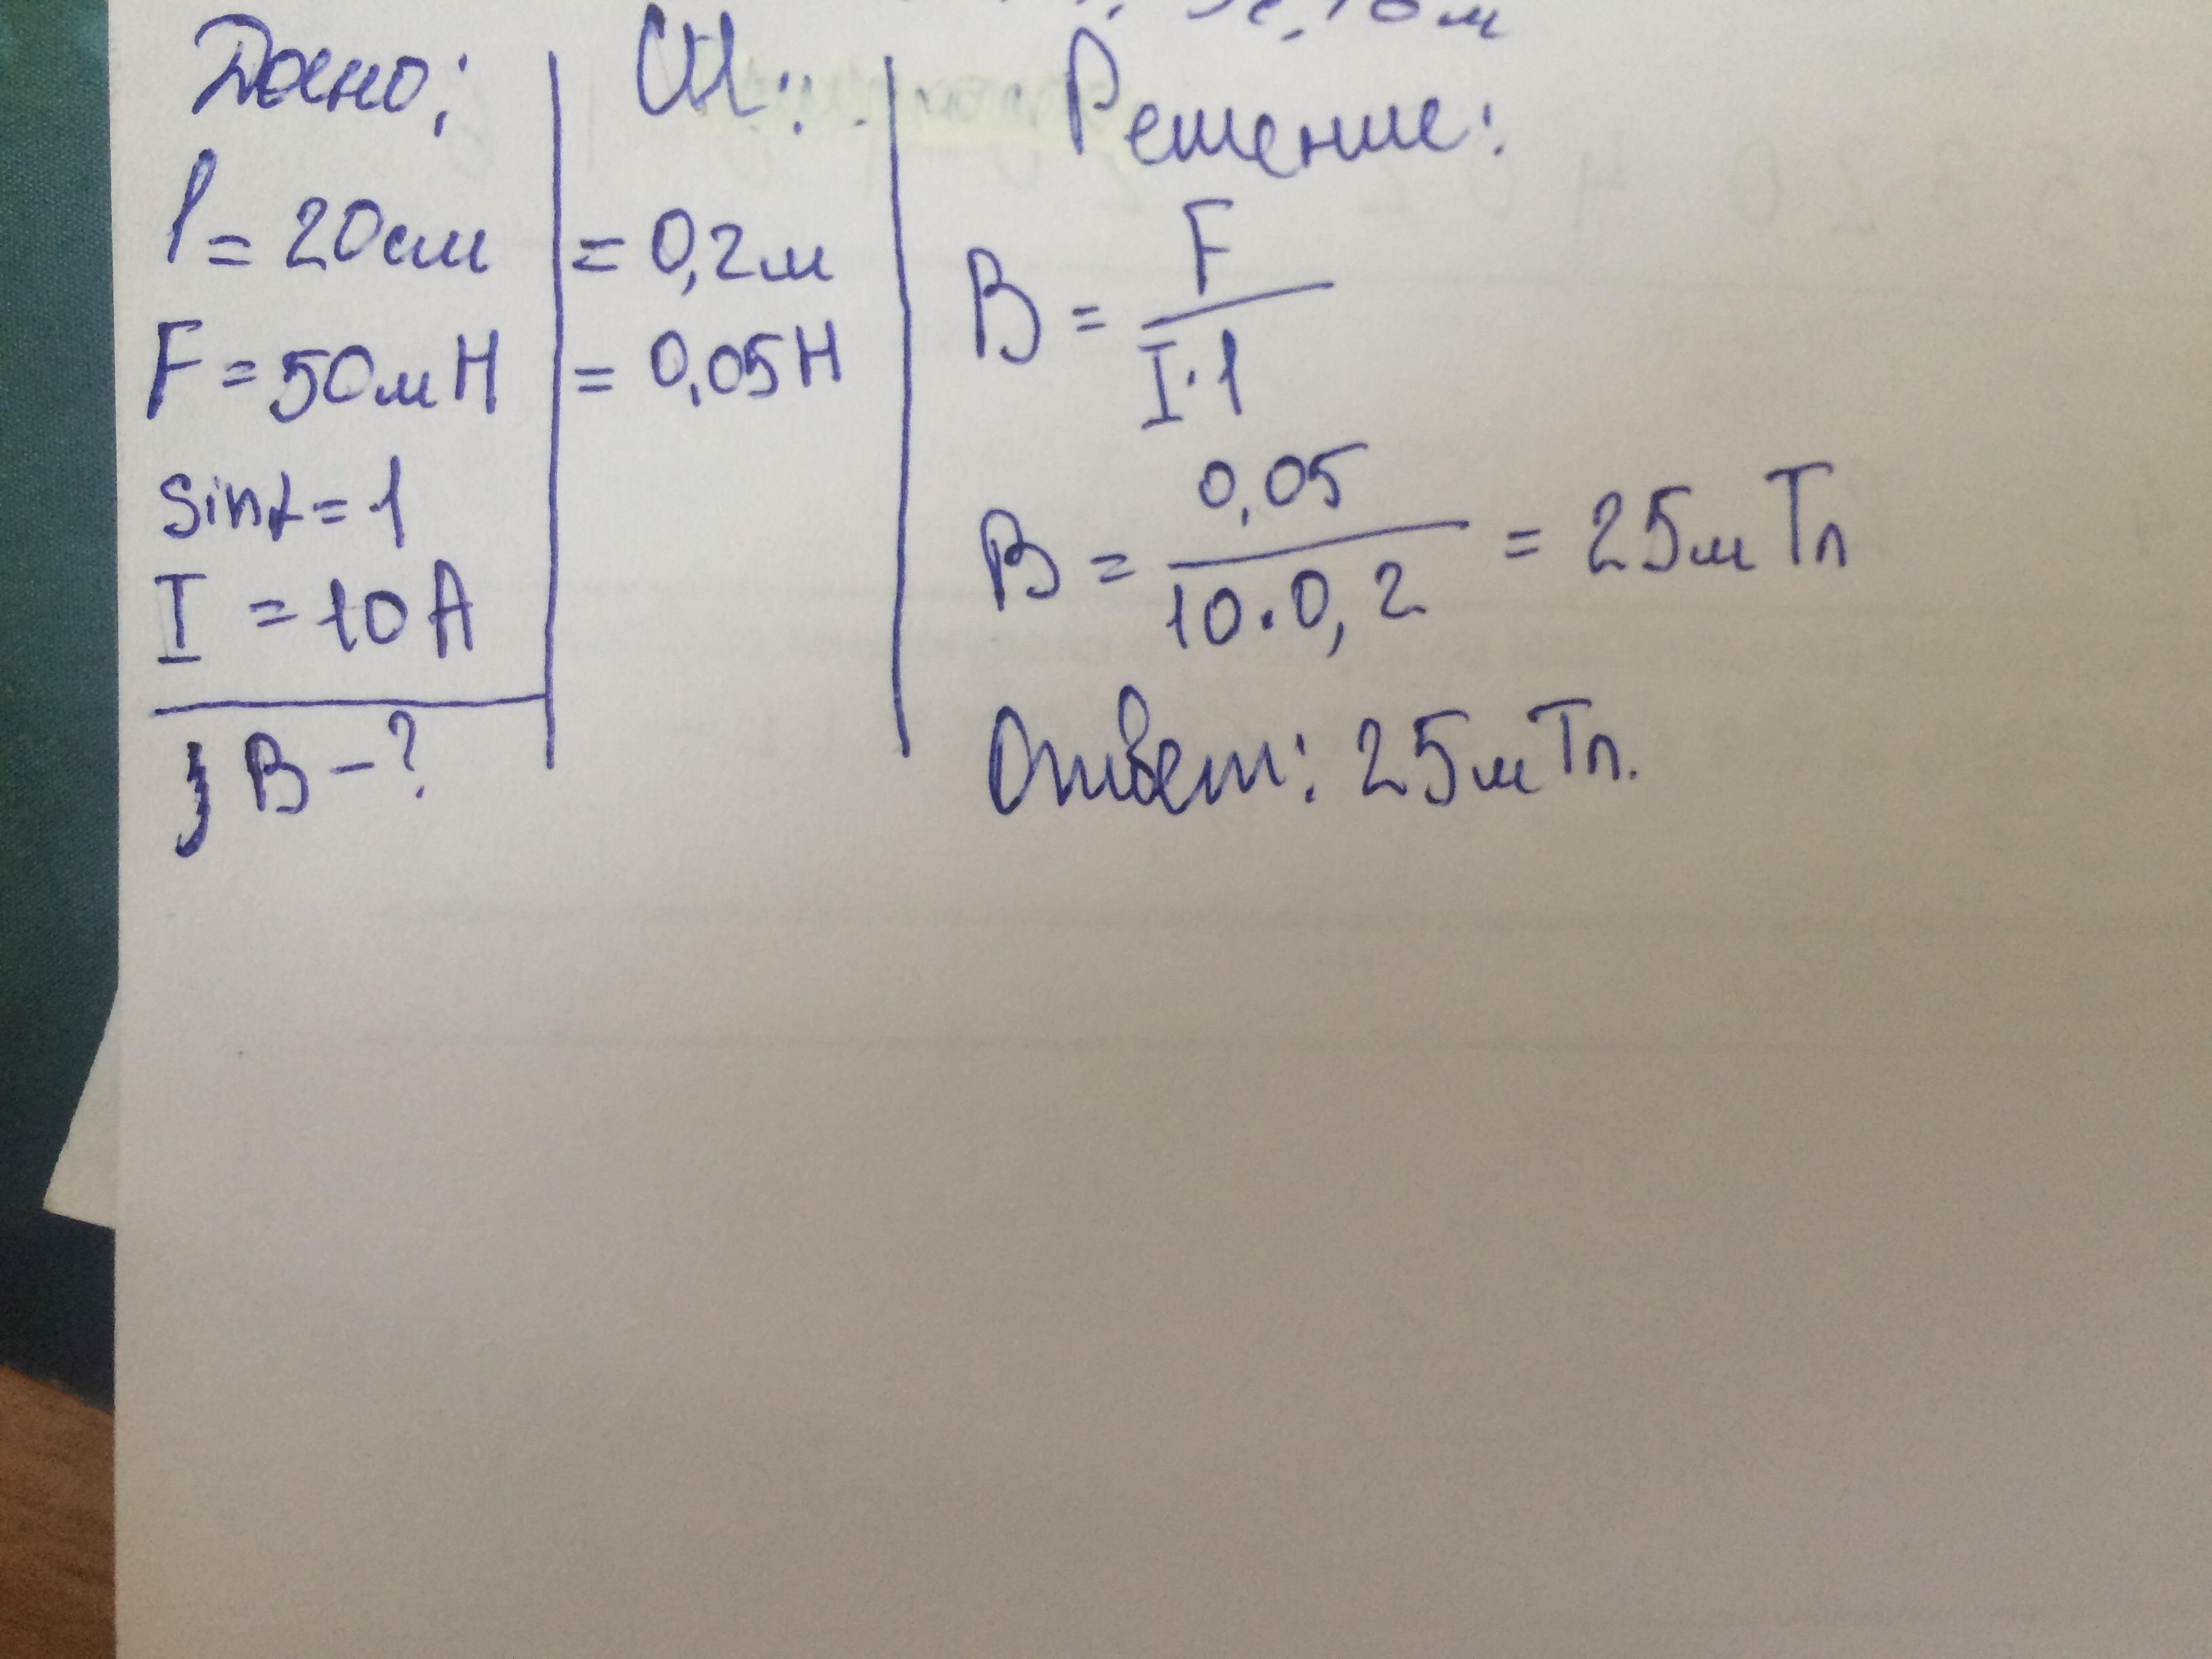 Дано:
l = 20см
F = 50мН
sinα = 1
I = 10А
В - ?
СИ:
= 0,2м
= 0,05Н
Решение:
В = F / I·l
В = 0,05 / 10·0,2 = 25мТл
Ответ: 25мТл.